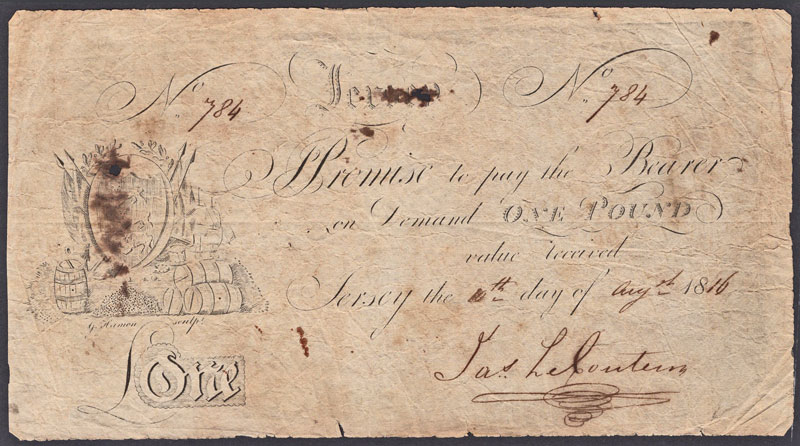 Jersey
No 784 No 784
I Promise to pay the Bearer
on Demand ONE POUND
value received
Jersey the 10th day of Augst 1816
G. Hamon sculpt.
£One
Jas. Le Couteur